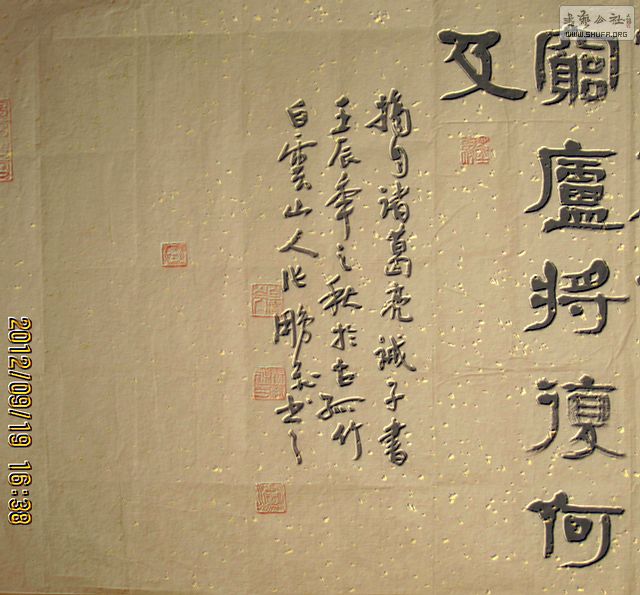 窮廬將復何
及
摘自諸葛亮誡子書
壬辰年之秋於古孤竹
白雲山人張鵬书
书艺公社
WWW.SHUFA.ORG
2012/09/19 16:38